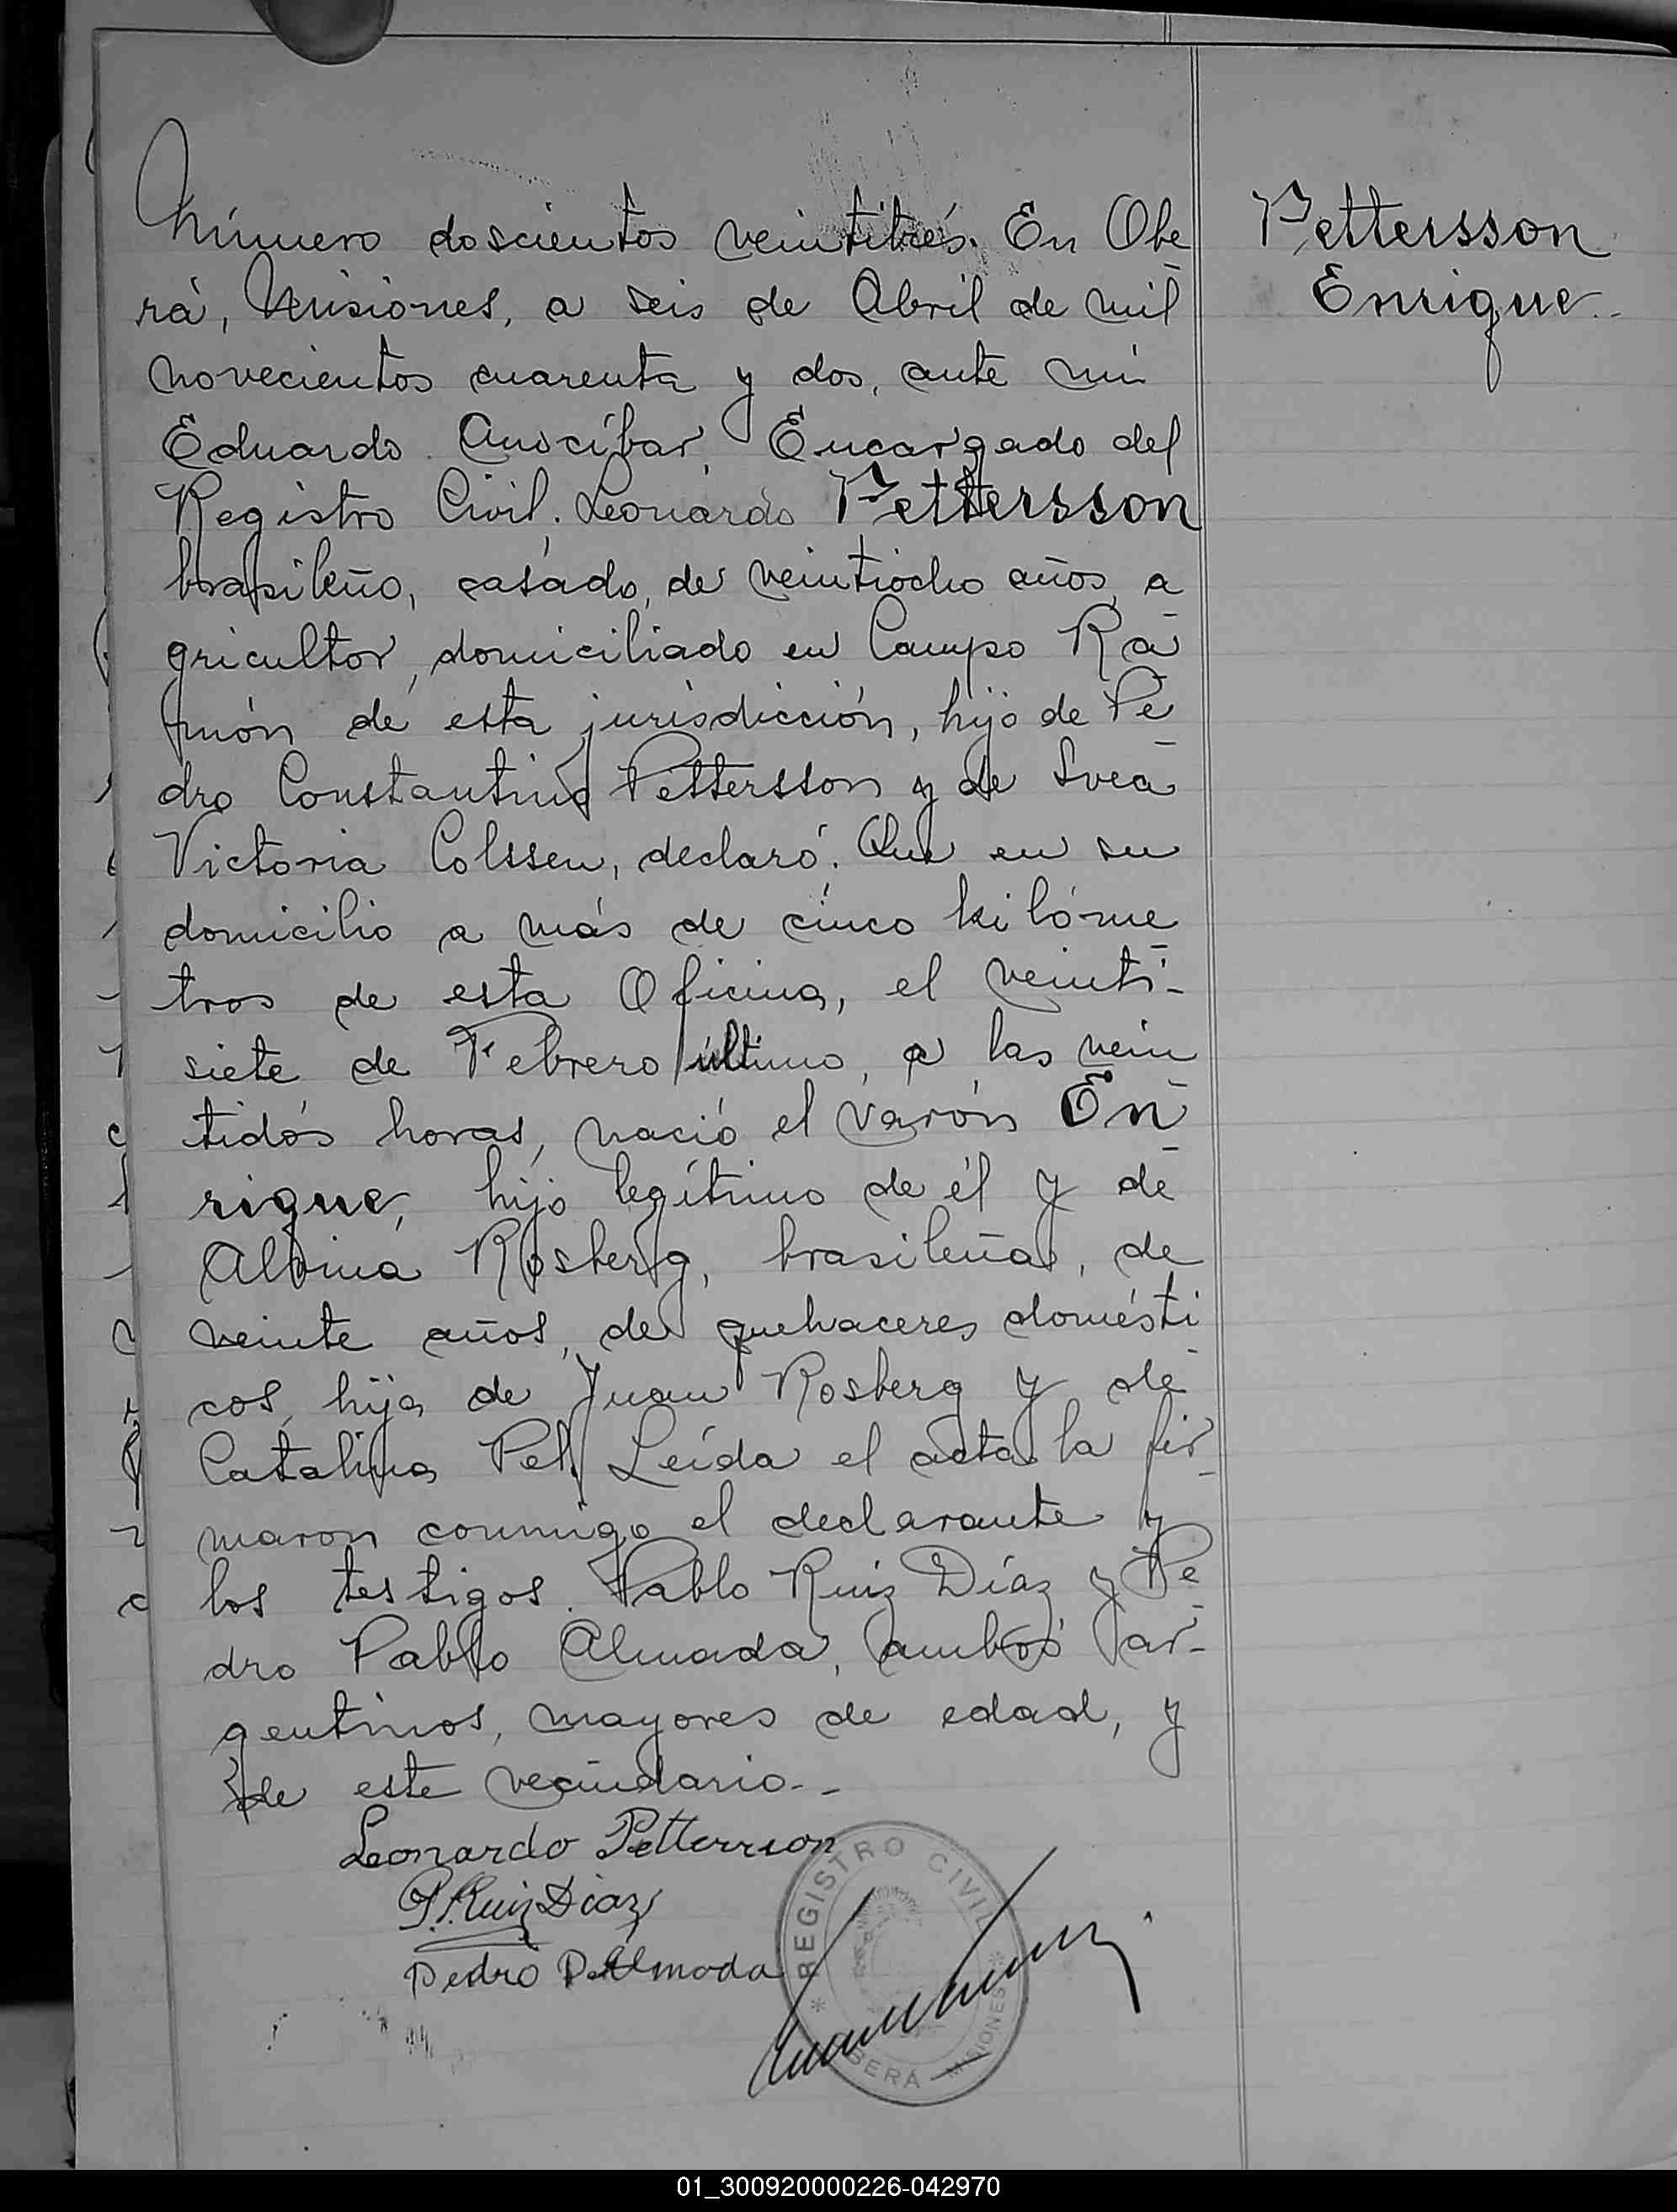 Número doscientos veintitrés. En Obe
rá, Misiones, a seis de Abril de mil
novecientos cuarenta y dos, ante mí
Eduardo Anocíbar, Encargado del
Registro Civil. Leonardo Pettersson
brasileño, casado, de veintiocho años, a
gricultor, domiciliado en Campo Ra
món de esta jurisdicción, hijo de Pe
dro Constantino Pettersson y de Svea
Victoria Colssen, declaró: Que en su
domicilio a más de cinco kilóme
tros de esta Oficina, el veinti-
siete de Febrero último, a las vein
tidós horas, nació el varón En
rique, hijo legítimo de él y de
Albina Rosberg, brasileña, de
veinte años, de quehaceres domésti
cos, hija de Juan Rosberg y de
Catalina Pel. Leída el acta la fir-
maron conmigo el declarante y
los testigos. Pablo Ruiz Díaz y Pe
dro Pablo Almada, ambos ar-
gentinos, mayores de edad, y
de este vecindario.-
Leonardo Pettersson
P. Ruiz Diaz
Pedro P. Almada
REGISTRO CIVIL
OBERÁ MISIONES
Pettersson
Enrique.
01_300920000226-042970